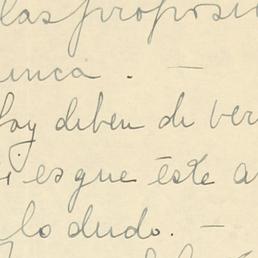 las proposi
unca. —
oy deben de ver
i es que éste a
lo dudo. —